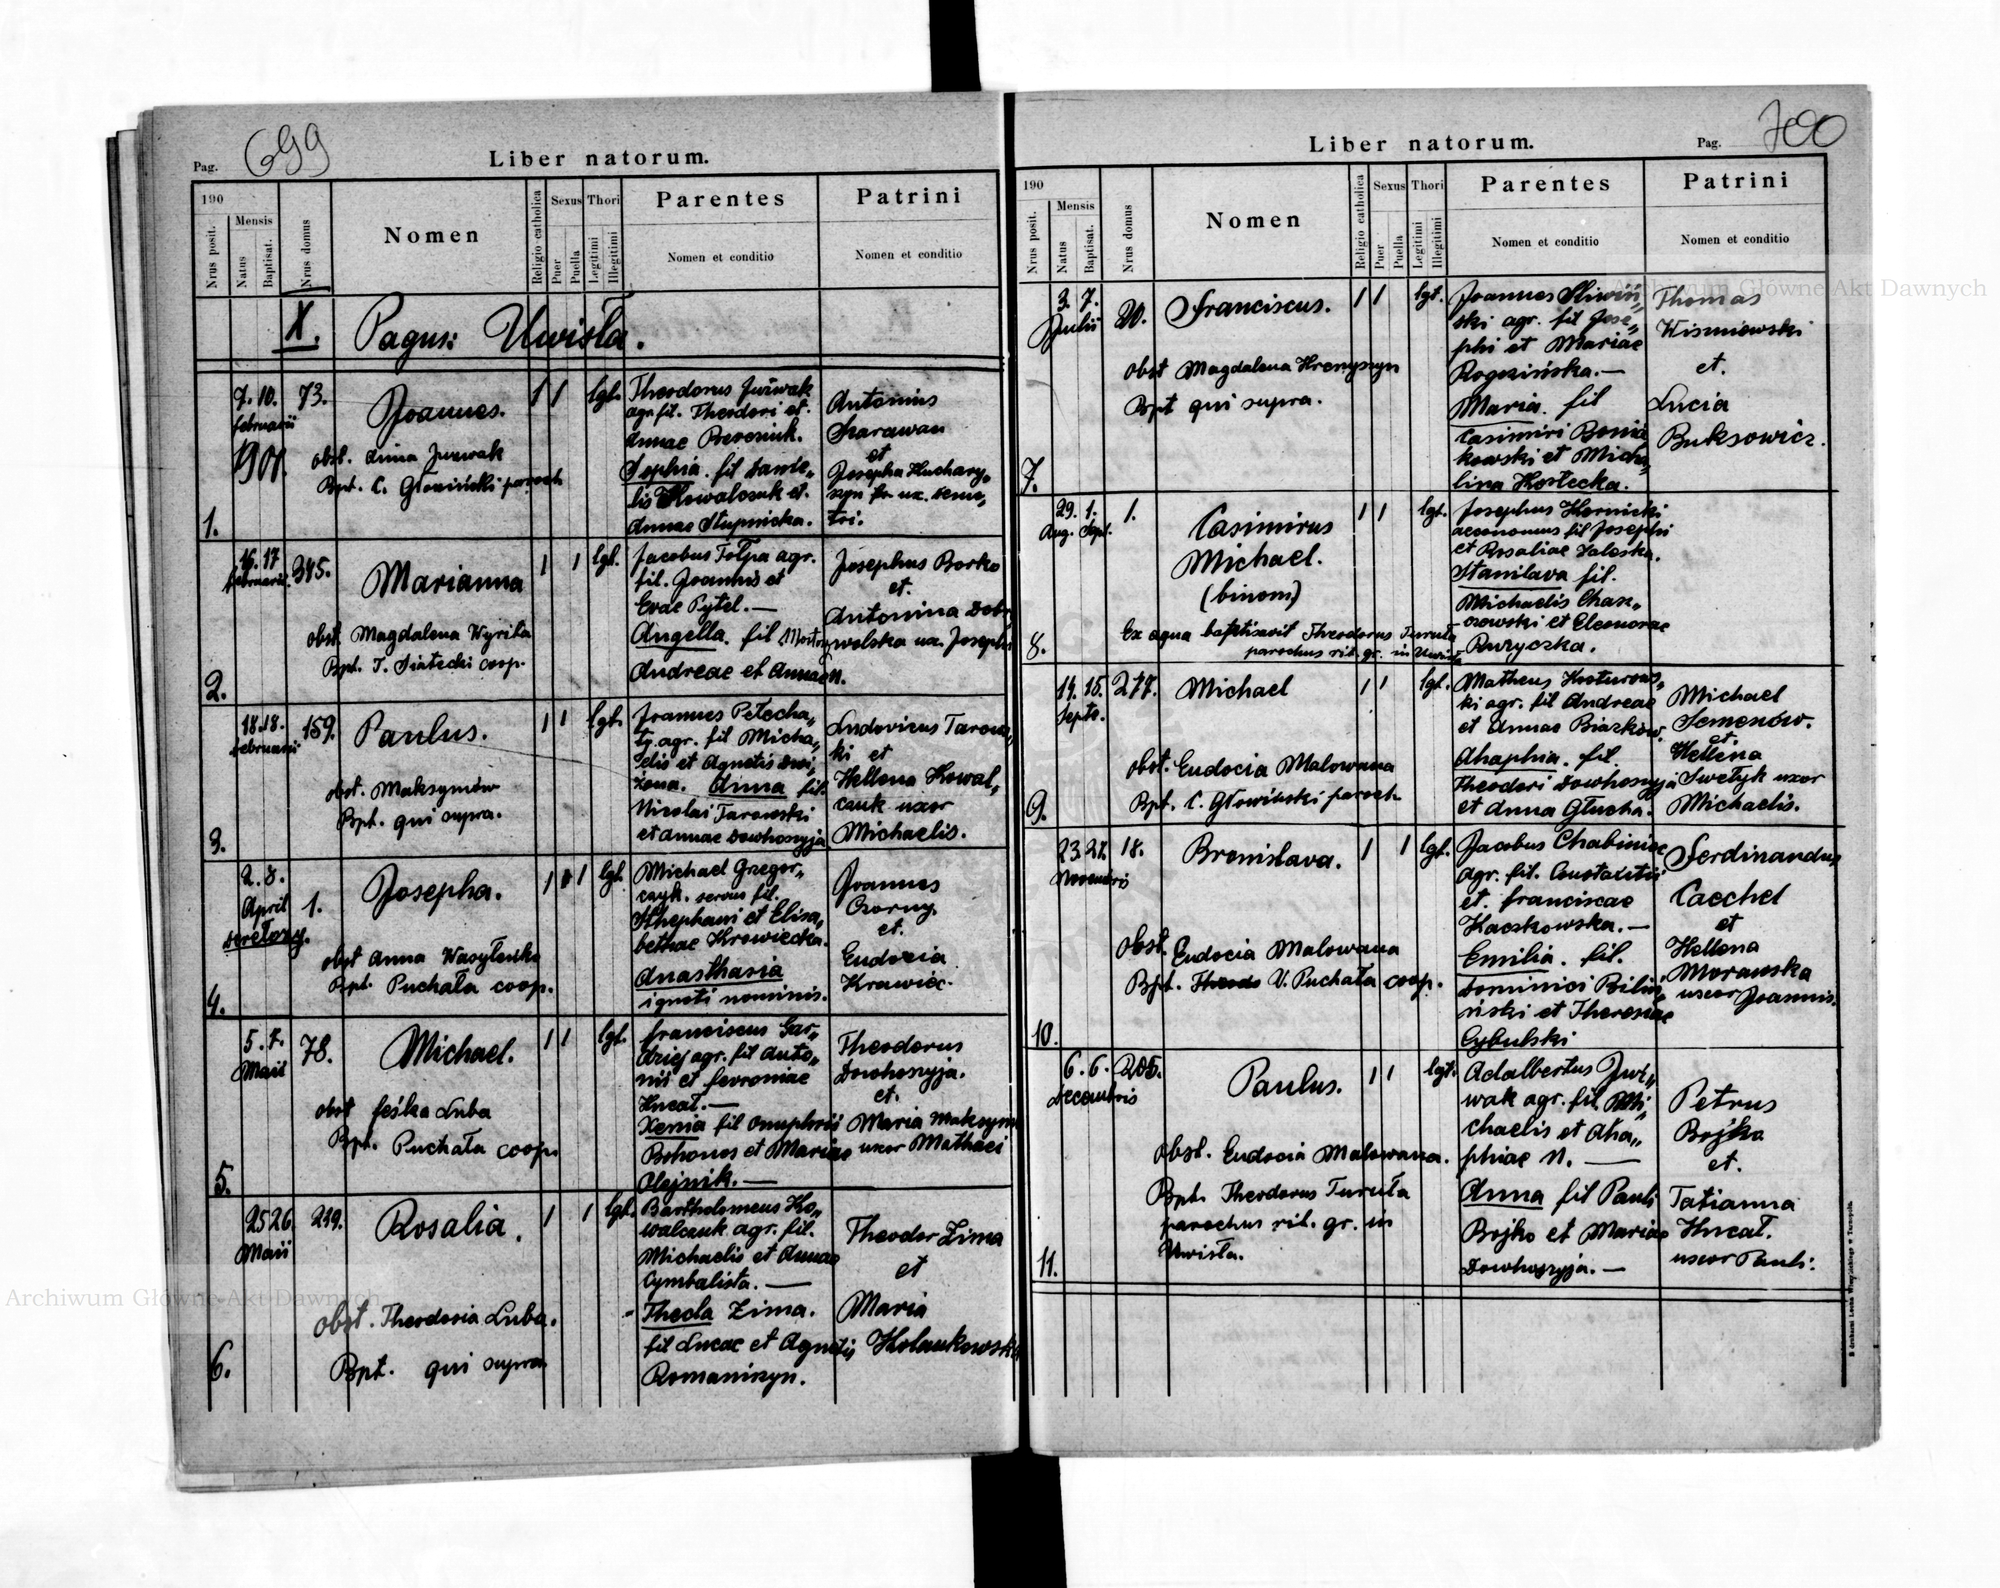 Pag. 699
Liber natorum.
190
Nrus posit.
Mensis
Natus
Baptisat.
Nrus domus
Nomen
Religio catholica
Sexus
Puer
Puella
Thori
Legitimi
Illegitimi
Parentes
Nomen et conditio
Patrini
Nomen et conditio
X. Pagus: Uwisła.
1.
7. 10.
februarii
1901.
73.
Joannes.
1 1 lgt.
obst. Anna Juzwak
Bpt. C. Głowiński paroch
Theodorus Juzwak
agr. fil. Theodori et
Annae
Sophia. fil Danie„
lis Kowalczuk et.
Annae Słupnicka.
Antonius
Szarawan
et
Josepha Kuchary„
szyn ux. Deme„
tri.
2.
16. 17
februarii.
345.
Marianna
1 1 lgt.
obst. Magdalena Wyriła
Bpt. T. Siatecki coop.
Jacobus Tołpa agr.
fil. Joannis et
Evae Pytel. —
Angella. fil
Andreae et Annae N.
Josephus Borko
et.
Antonina Dobr
wolska ux. Josephi
3.
18. 18.
februarii
159.
Paulus.
1 1 lgt.
obst. Maksymów
Bpt. qui supra.
Joannes Petecha„
ty. agr. fil Micha„
elis et Agnetis Dwi„
żona. Anna fil.
Nicolai Tarowski
et Annae Dowhoszyja
Ludovicus Tarows„
ki et
Hellena Kowal„
czuk uxor
Michaelis.
4.
2. 8.
April
1.
Josepha.
1 1 lgt.
obst Anna Wasyleńko
Bpt. Puchała coop.
Michael Gregor„
czyk. servus fil.
Sthephani et Elisa„
bethae Krowiecka.
Anasthasia
ignoti nominis.
Joannes
Czorny.
et.
Eudoxia
Krawiec.
5.
5. 7.
Maii
78.
Michael.
1 1 lgt.
obst feśka Luba
Bpt. Puchała coop.
franciscus Gar„
dziej agr. fil Anto„
nii et fevroniae
Hncat. —
Xenia fil Onuphrii
Bohonos et Mariae
Olejnik. —
Theodorus
Dowhoszyja.
et.
Maria Maksym
uxor Mathaei
6.
25 26
Maii
219.
Rosalia.
1 1 lgt.
obst. Theodosia Luba.
Bpt. qui supra
Bartholomeus Ko„
walczuk agr. fil.
Michaelis et Annae
Cymbalista. —
Thecla Zima.
fil Lucae et Agnetis
Romaniszyn.
Theodor Zima
et
Maria
Holankowska
Liber natorum.
Pag. 700
190
Nrus posit.
Mensis
Natus
Baptisat.
Nrus domus
Nomen
Religio catholica
Sexus
Puer
Puella
Thori
Legitimi
Illegitimi
Parentes
Nomen et conditio
Patrini
Nomen et conditio
7.
3. 7.
Julii
20.
Franciscus.
1 1 lgt.
obst Magdalena Hrenyszyn
Bpt qui supra.
Joannes Sliwiń„
ski agr. fil Jose„
phi et Mariae
Rogozińska. —
Maria. fil
Casimiri Bonia
kowski et Micha
lina Kostecka.
Thomas
Wiszniowski
et.
Lucia
Buksowicz.
8.
29. 1.
Aug. Sept.
1.
Casimirus
Michael.
(binom)
1 1 lgt.
Ex aqua baptisavit Theodorus Turuła
parochus rit. gr. in Uwisła
Josephus Hornicki
aeconomus fil Josephi
et Rosaliae Zaleska.
Stanilava fil.
Michaelis Chas„
zowski et Eleonorae
Buryczka.
9.
14. 15.
Septb.
277.
Michael
1 1 lgt.
obst. Eudocia Malowana
Bpt. C. Głowiński paroch
Matheus Koturows„
ki agr. fil Andreae
et Annae Biazków.
Ahaphia. fil.
Theodori Dowhoszyja
et Anna Głucha.
Michael
Semenów.
et
Hellena
Swetyk uxor
Michaelis.
10.
23. 27.
Novembris
18.
Bronislava.
1 1 lgt.
obst. Eudocia Malowana
Bpt. V. Puchała coop.
Jacobus Chabiniec
agr. fil. Constantii
et. franciscae
Kaczkowska. —
Emilia. fil.
Dominici Biliń„
ński et Theresiae
Cybulski
Ferdinandus
Caechel
et
Hellena
Morawska
uxor Joannis.
11.
6. 6.
Decembris
205.
Paulus.
1 1 lgt.
obst. Eudocia Malowana.
Bpt. Theodorus Turuła
parochus rit. gr. in
Uwisła.
Adalbertus Juź„
wak agr. fil. Mi„
chaelis et Aha„
phiae N. —
Anna fil Pauli
Bojko et Mariae
Dowhoszyja. —
Petrus
Bojko
et.
Tatianna
Hncat.
uxor Pauli.
Archiwum Główne Akt Dawnych
Archiwum Główne Akt Dawnych